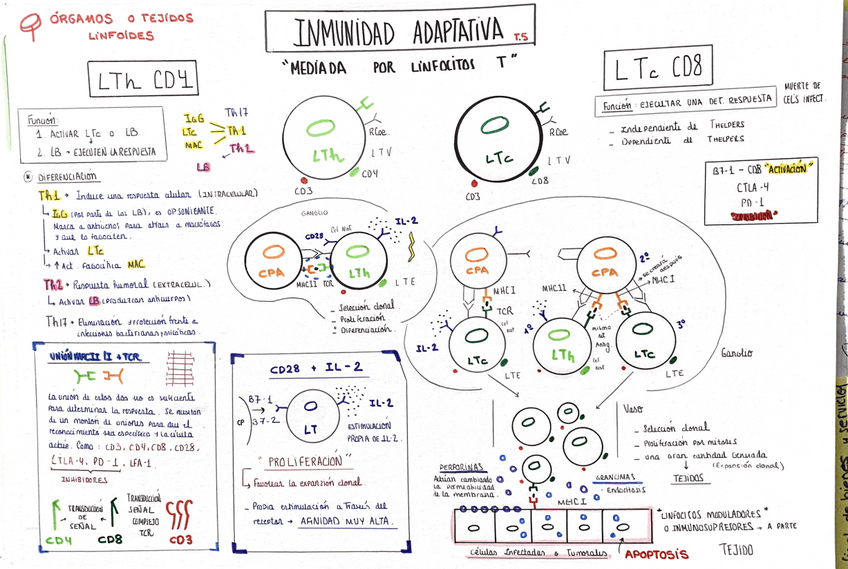 ÓRGANOS O TEJIDOS
LINFOIDES
INMUNIDAD ADAPTATIVA T.5
"MEDIADA POR LINFOCITOS T"
LTh CD4
Función:
1. ACTIVAR LTc O LB
2. LB → EJECUTEN LA RESPUESTA
IgG
LTc
MAC
Th17
Th1
Th2
LB
DIFERENCIACIÓN
Th1 → Induce una respuesta celular (INTRACELULAR)
IgG (por parte de los LB), es OPSONIZANTE.
Marca a antígenos para atraer a macrófagos
y que lo fagociten.
Activar LTc
↑ Act. Fagocítica MAC
Th2 → Respuesta humoral (EXTRACELUL.)
Activar LB (producirán anticuerpos)
Th17 → Eliminación y protección frente a
infecciones bacterianas
LTh
RCoe
LTV
CD4
CD3
LTc
RCoe
LTV
CD8
CD3
LTc CD8
Función: EJECUTAR UNA DET. RESPUESTA
MUERTE DE
CELS INFECT.
- Independiente de THELPERS
- Dependiente de THELPERS
B7-1 - CD28 "ACTIVACIÓN"
CTLA-4
PD-1
GANGLIO
CD28
IL-2
CPA
LTh
MHCII TCR
LTE
- Selección clonal
- Proliferación
- Diferenciación.
CPA
MHCI
TCR
IL-2
LTc
LTE
CPA
2º
MHCII
MHCI
1º
LTh
mismo
Antg.
LTc
3º
LTE
Ganglio
UNIÓN MHC II/I + TCR
La unión de estos dos no es suficiente
para determinar la respuesta. Se necesitan
de un montón de uniones para que el
reconocimiento sea específico y la célula
actúe. Como: CD3, CD4, CD8, CD28,
CTLA-4, PD-1, LFA-1.
INHIBIDORES
TRANSDUCCIÓN
DE
SEÑAL
TRANSDUCCIÓN
SEÑAL
COMPLEJO
TCR
CD4
CD8
CD3
CD28 + IL-2
B7-1
B7-2
CP
IL-2
LT
ESTIMULACIÓN
PROPIA DE IL-2.
"PROLIFERACIÓN"
Favorece la expansión clonal.
- Propia estimulación a través del
receptor → AFINIDAD MUY ALTA.
Vaso
- Selección clonal
- Proliferación por mitosis
- una gran cantidad generada
(Expansión clonal)
TEJIDOS
PERFORINAS
Actúan cambiando
la permeabilidad
de la membrana.
GRANCIMAS
- Endocitosis
MHCI
Células Infectadas o Tumorales
APOPTOSIS
"LINFOCITOS MODULADORES"
O INMUNOSUPRESORES → A PARTE
TEJIDO